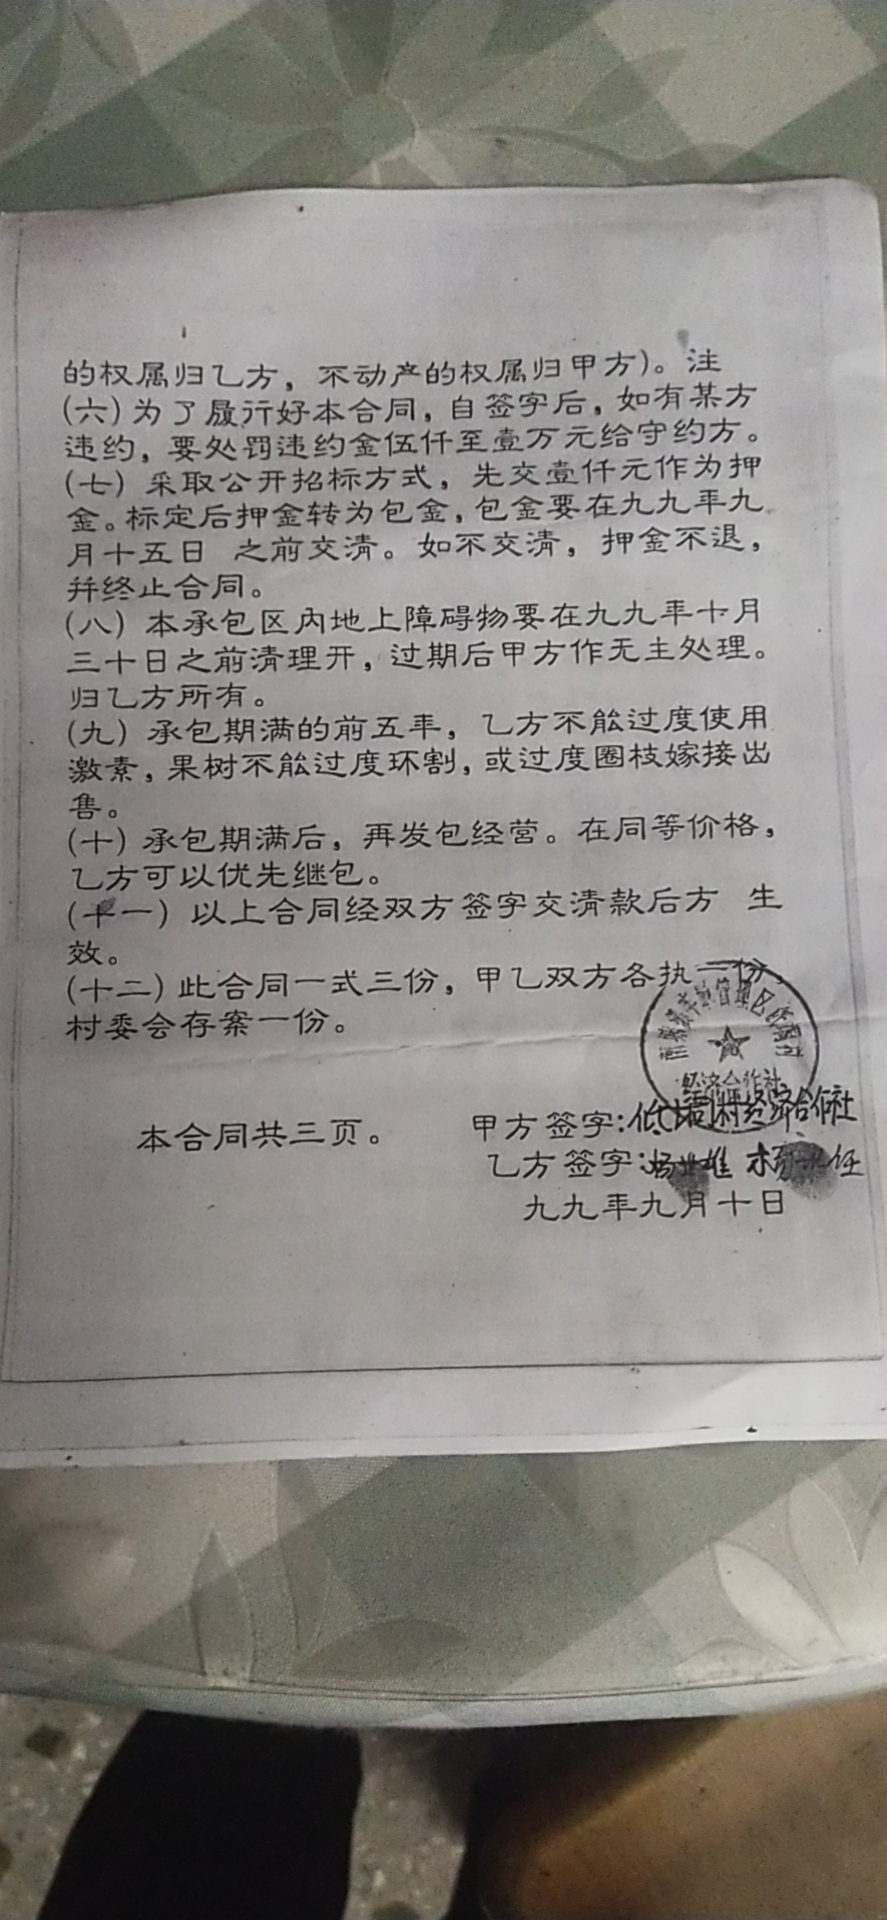 的权属归乙方，不动产的权属归甲方)。注
(六)为了履行好本合同，自签字后，如有某方
违约，要处罚违约金伍仟至壹万元给守约方。
(七) 采取公开招标方式，先交壹仟元作为押
金。标定后押金转为包金，包金要在九九年九
月十五日 之前交清。如不交清，押金不退，
并终止合同。
(八) 本承包区内地上障碍物要在九九年十月
三十日之前清理开，过期后甲方作无主处理。
归乙方所有。
(九) 承包期满的前五年，乙方不能过度使用
激素，果树不能过度环割，或过度圈枝嫁接出
售。
(十) 承包期满后，再发包经营。在同等价格，
乙方可以优先继包。
(十一) 以上合同经双方签字交清款后方 生
效。
(十二) 此合同一式三份，甲乙双方各执一份，
村委会存案一份。
管理区
经济合作社
本合同共三页。
甲方签字:村经济合作社
乙方签字:杨 雄 杨 任
九九年九月十日